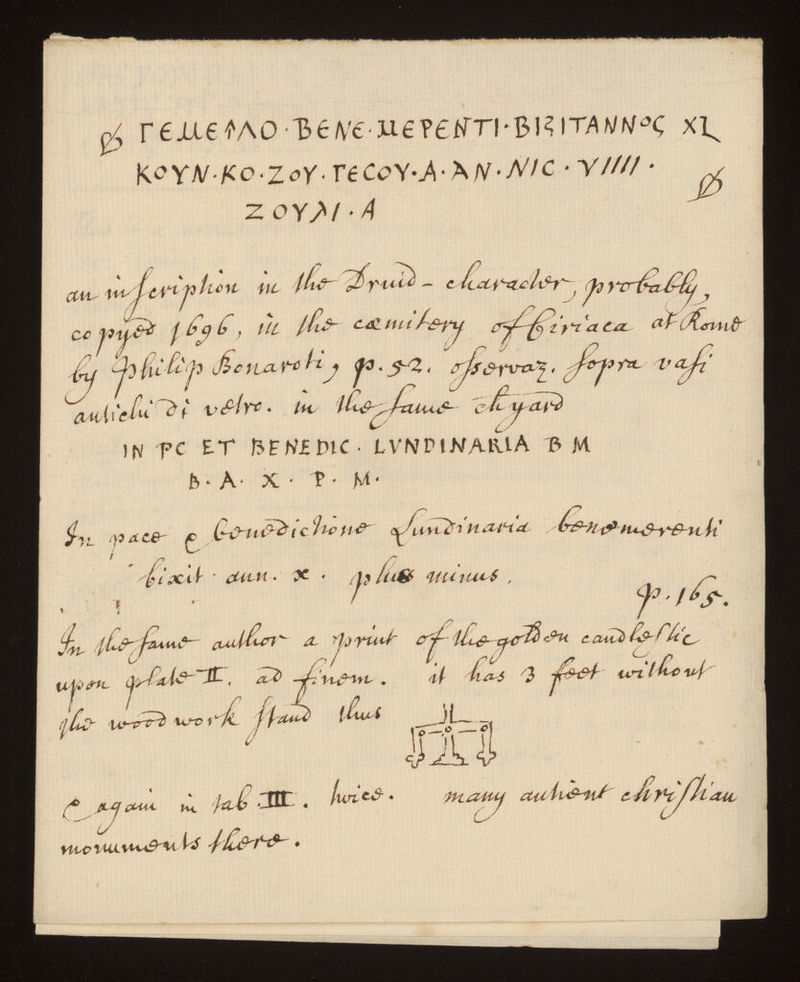 ΓΕΜΕΤΛΟ · ΒΕΝΕ · ΜΕΡΕΝΤΙ · ΒΙΞΙΤΑΝΝΟC XL
ΚΟΥΝ · ΚΟ · ΖΟΥ · ΓΕCΟΥ · Α · ΑΝ · ΝΙC · VIIII ·
ΖΟΥΛΙ · Α
an inscription in the Druid-character, probably,
copyed 1696, in the cæmitery of Ciriaca at Rome
by Philip Bonaroti, p. 52. osservaz. sopra vasi
antichi di vetro. in the same chyard
IN PC ET BENEDIC · LVNDINARIA B M
B · A · X · P · M ·
In pace & benedictione Lundinaria benemerenti
bixit ann. x. plus minus.
p. 165.
In the same author a print of the golden candlestic
upon plate II. ad finem. it has 3 feet without
the woodwork stand thus
& again in tab. III. twice. many antient christian
monuments there.